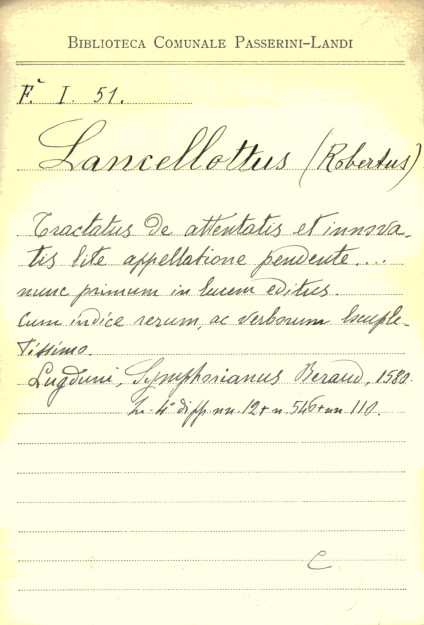 BIBLIOTECA COMUNALE PASSERINI-LANDI
F. I. 51.
Lancellottus (Robertus)
Tractatus de attentatis et innova-
tis lite appellatione pendente....
nunc primum in lucem editus.
Cum indice rerum, ac verborum locuple-
tissimo.
Lugduni, Symphorianus Beraud, 1580.
4° nn. 12 + n. 546 + nn 110.
C